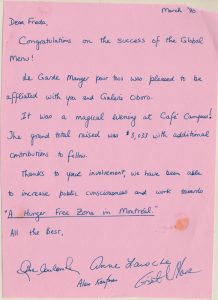 March '90
Dear Freda,
Congratulations on the success of the Global
Menu!
Le Garde Manger pour tous was pleased to be
affiliated with you and Galerie Oboro.
It was a magical evening at Café Campus!
The grand total raised was $3,033 with additional
contributions to follow.
Thanks to your involvement, we have been able
to increase public consciousness and work towards
"A Hunger Free Zone in Montréal."
All the Best,
Anne
Alan